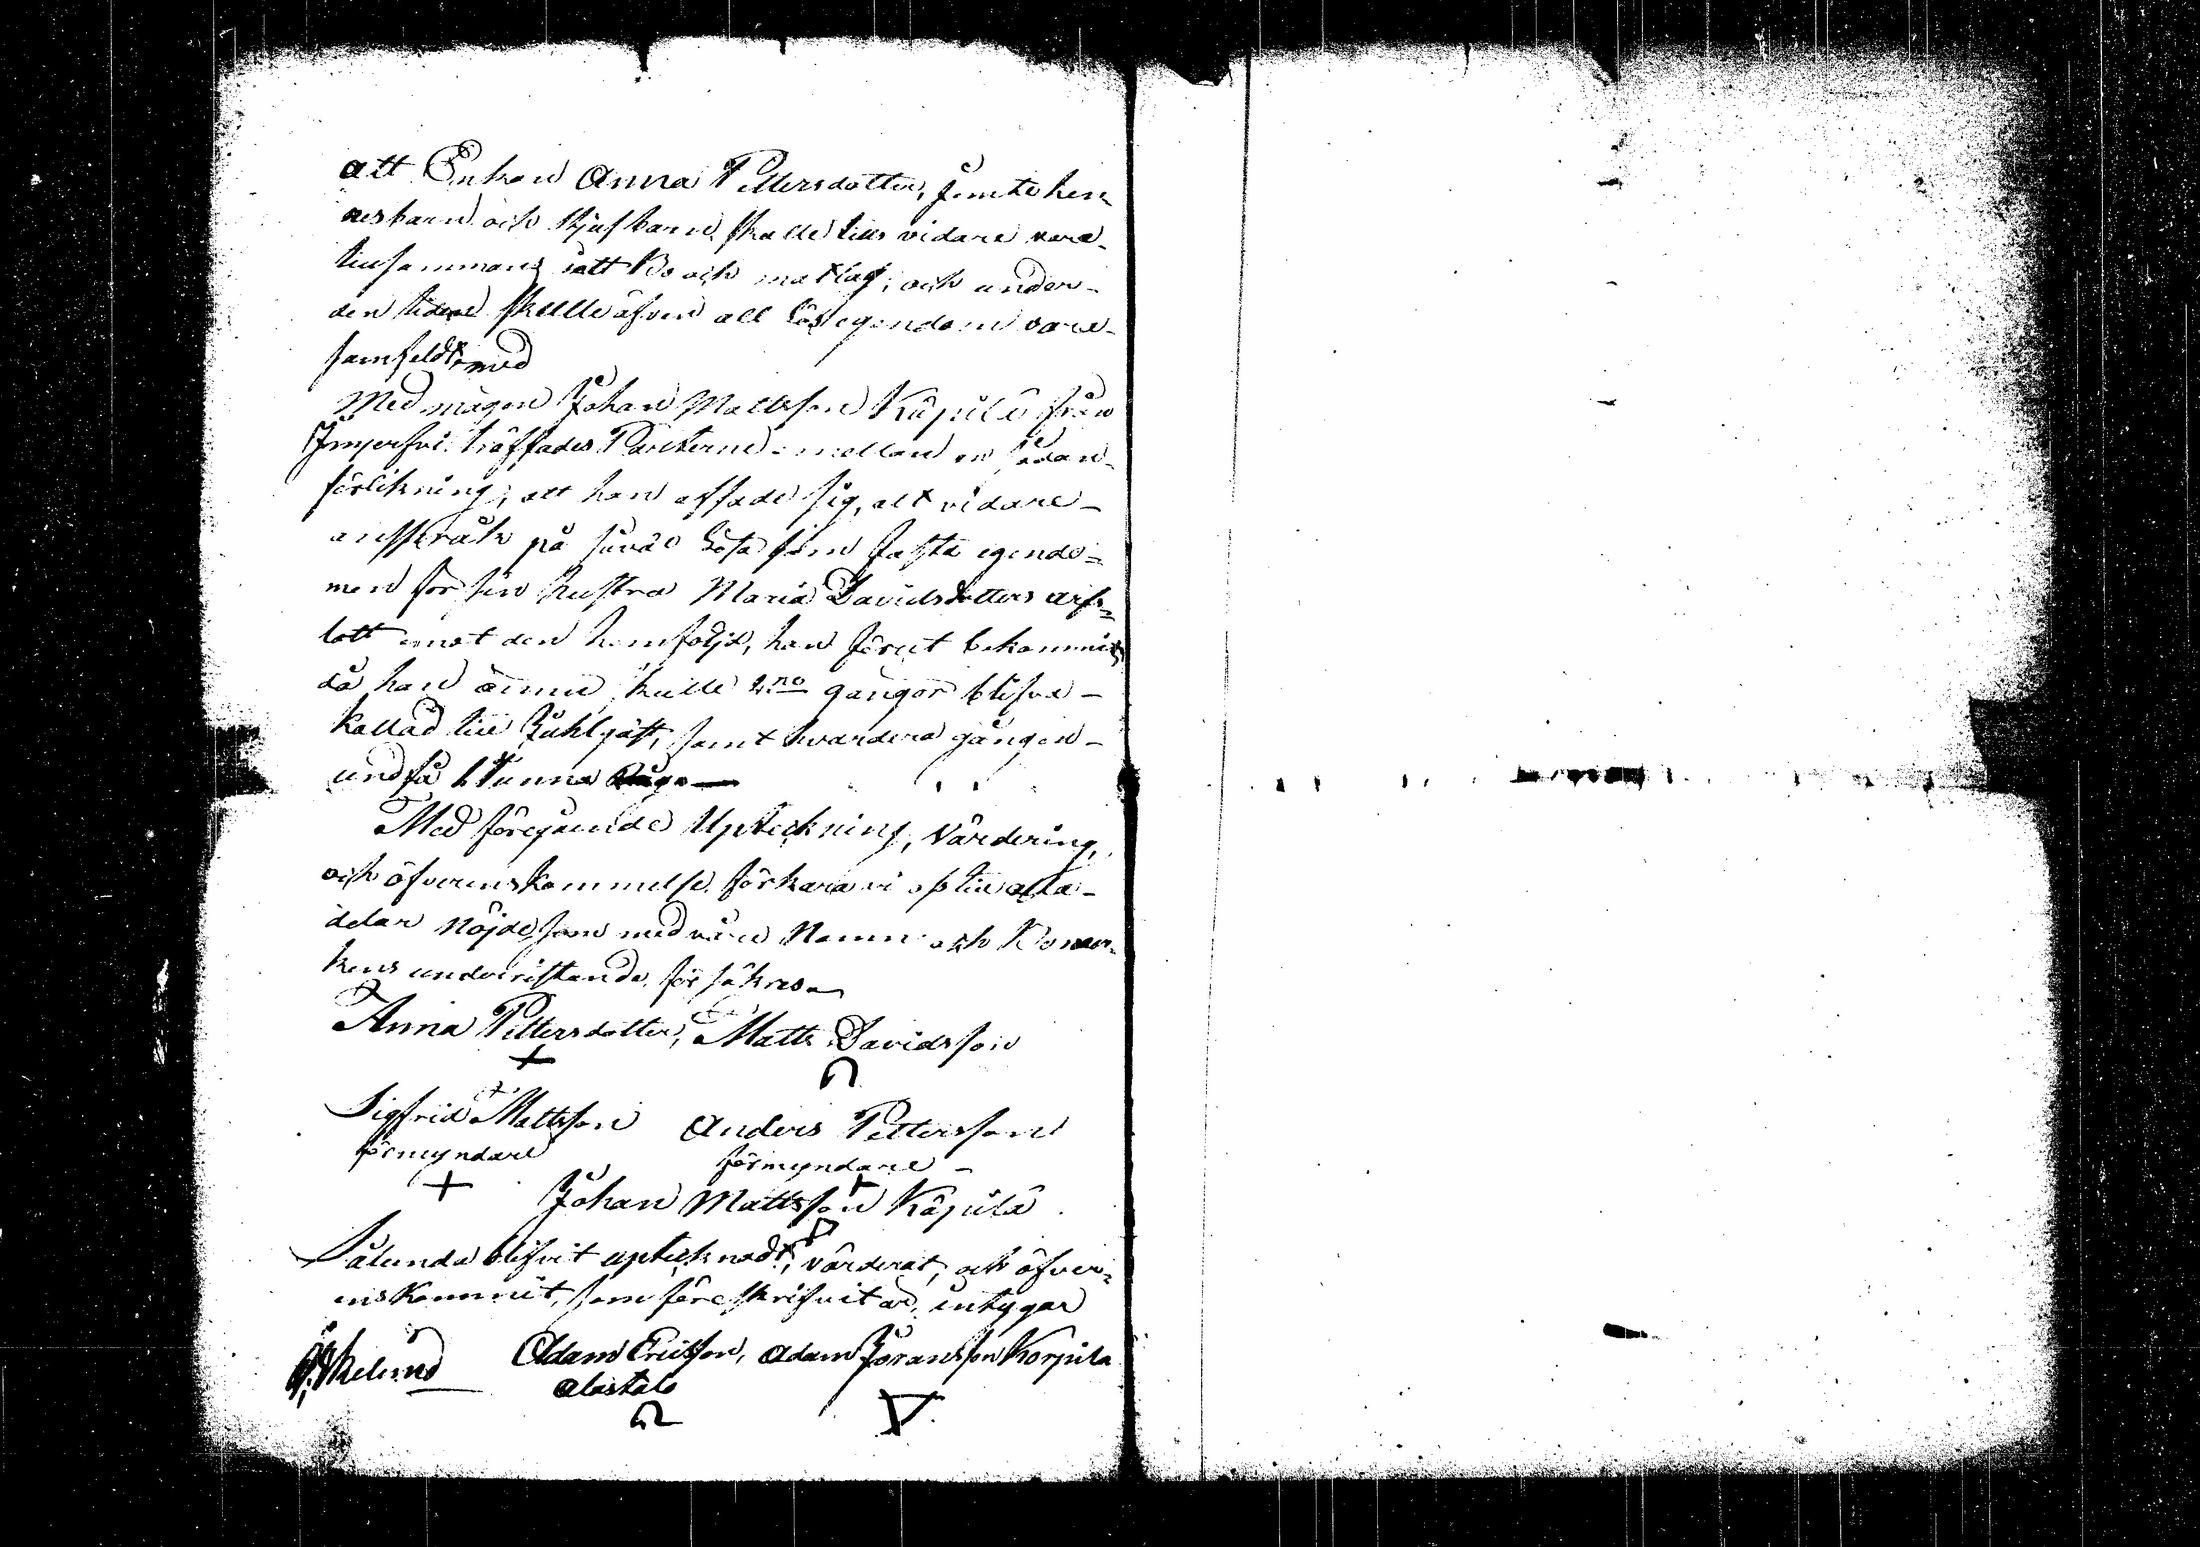 att Enkan Anna Pettersdotter, jemte hen-
nes barn och styfbarn skulle tills vidare vara-
tillsammans i ett Bo och matlag; och under-
den tiden skulle äfven all lös egendom vara-
samfeldt med
Med mågen Johan Mattsson Käpilä från
Imjerfvi träffades Parterne-mellan en sådan-
förlikning, att han afsade sig, alt vidare-
anspråk på såväl lösa som fasta egendo=
men för sin hustru Maria Davidsdotters arfs=
lott emot den hemföljd, han förut bekommit,
då han ännu skulle 2ne gångor blifva-
kallad till Juhlgäst, samt hvardera gången-
undfå 1 Tunna Råga
Med föregående Upteckning, Värdering,
och öfverenskommelse förklara vi oss till alla-
delar nöjde, som med våre Namn och Bomär-
kens undersättande försäkras
Anna Pettersdotter, Matts Davidsson
Sigfrid Mattsson Anders Pettersson
förmyndare förmyndare -
Johan Mattsson Käpilä
Sålunda blifvit uptecknadt, värderat, och öfver=
enskommit, som föreskrifvit är, intyga
Adam Ericsson, Adam Jöransson Korpila
Alastalo